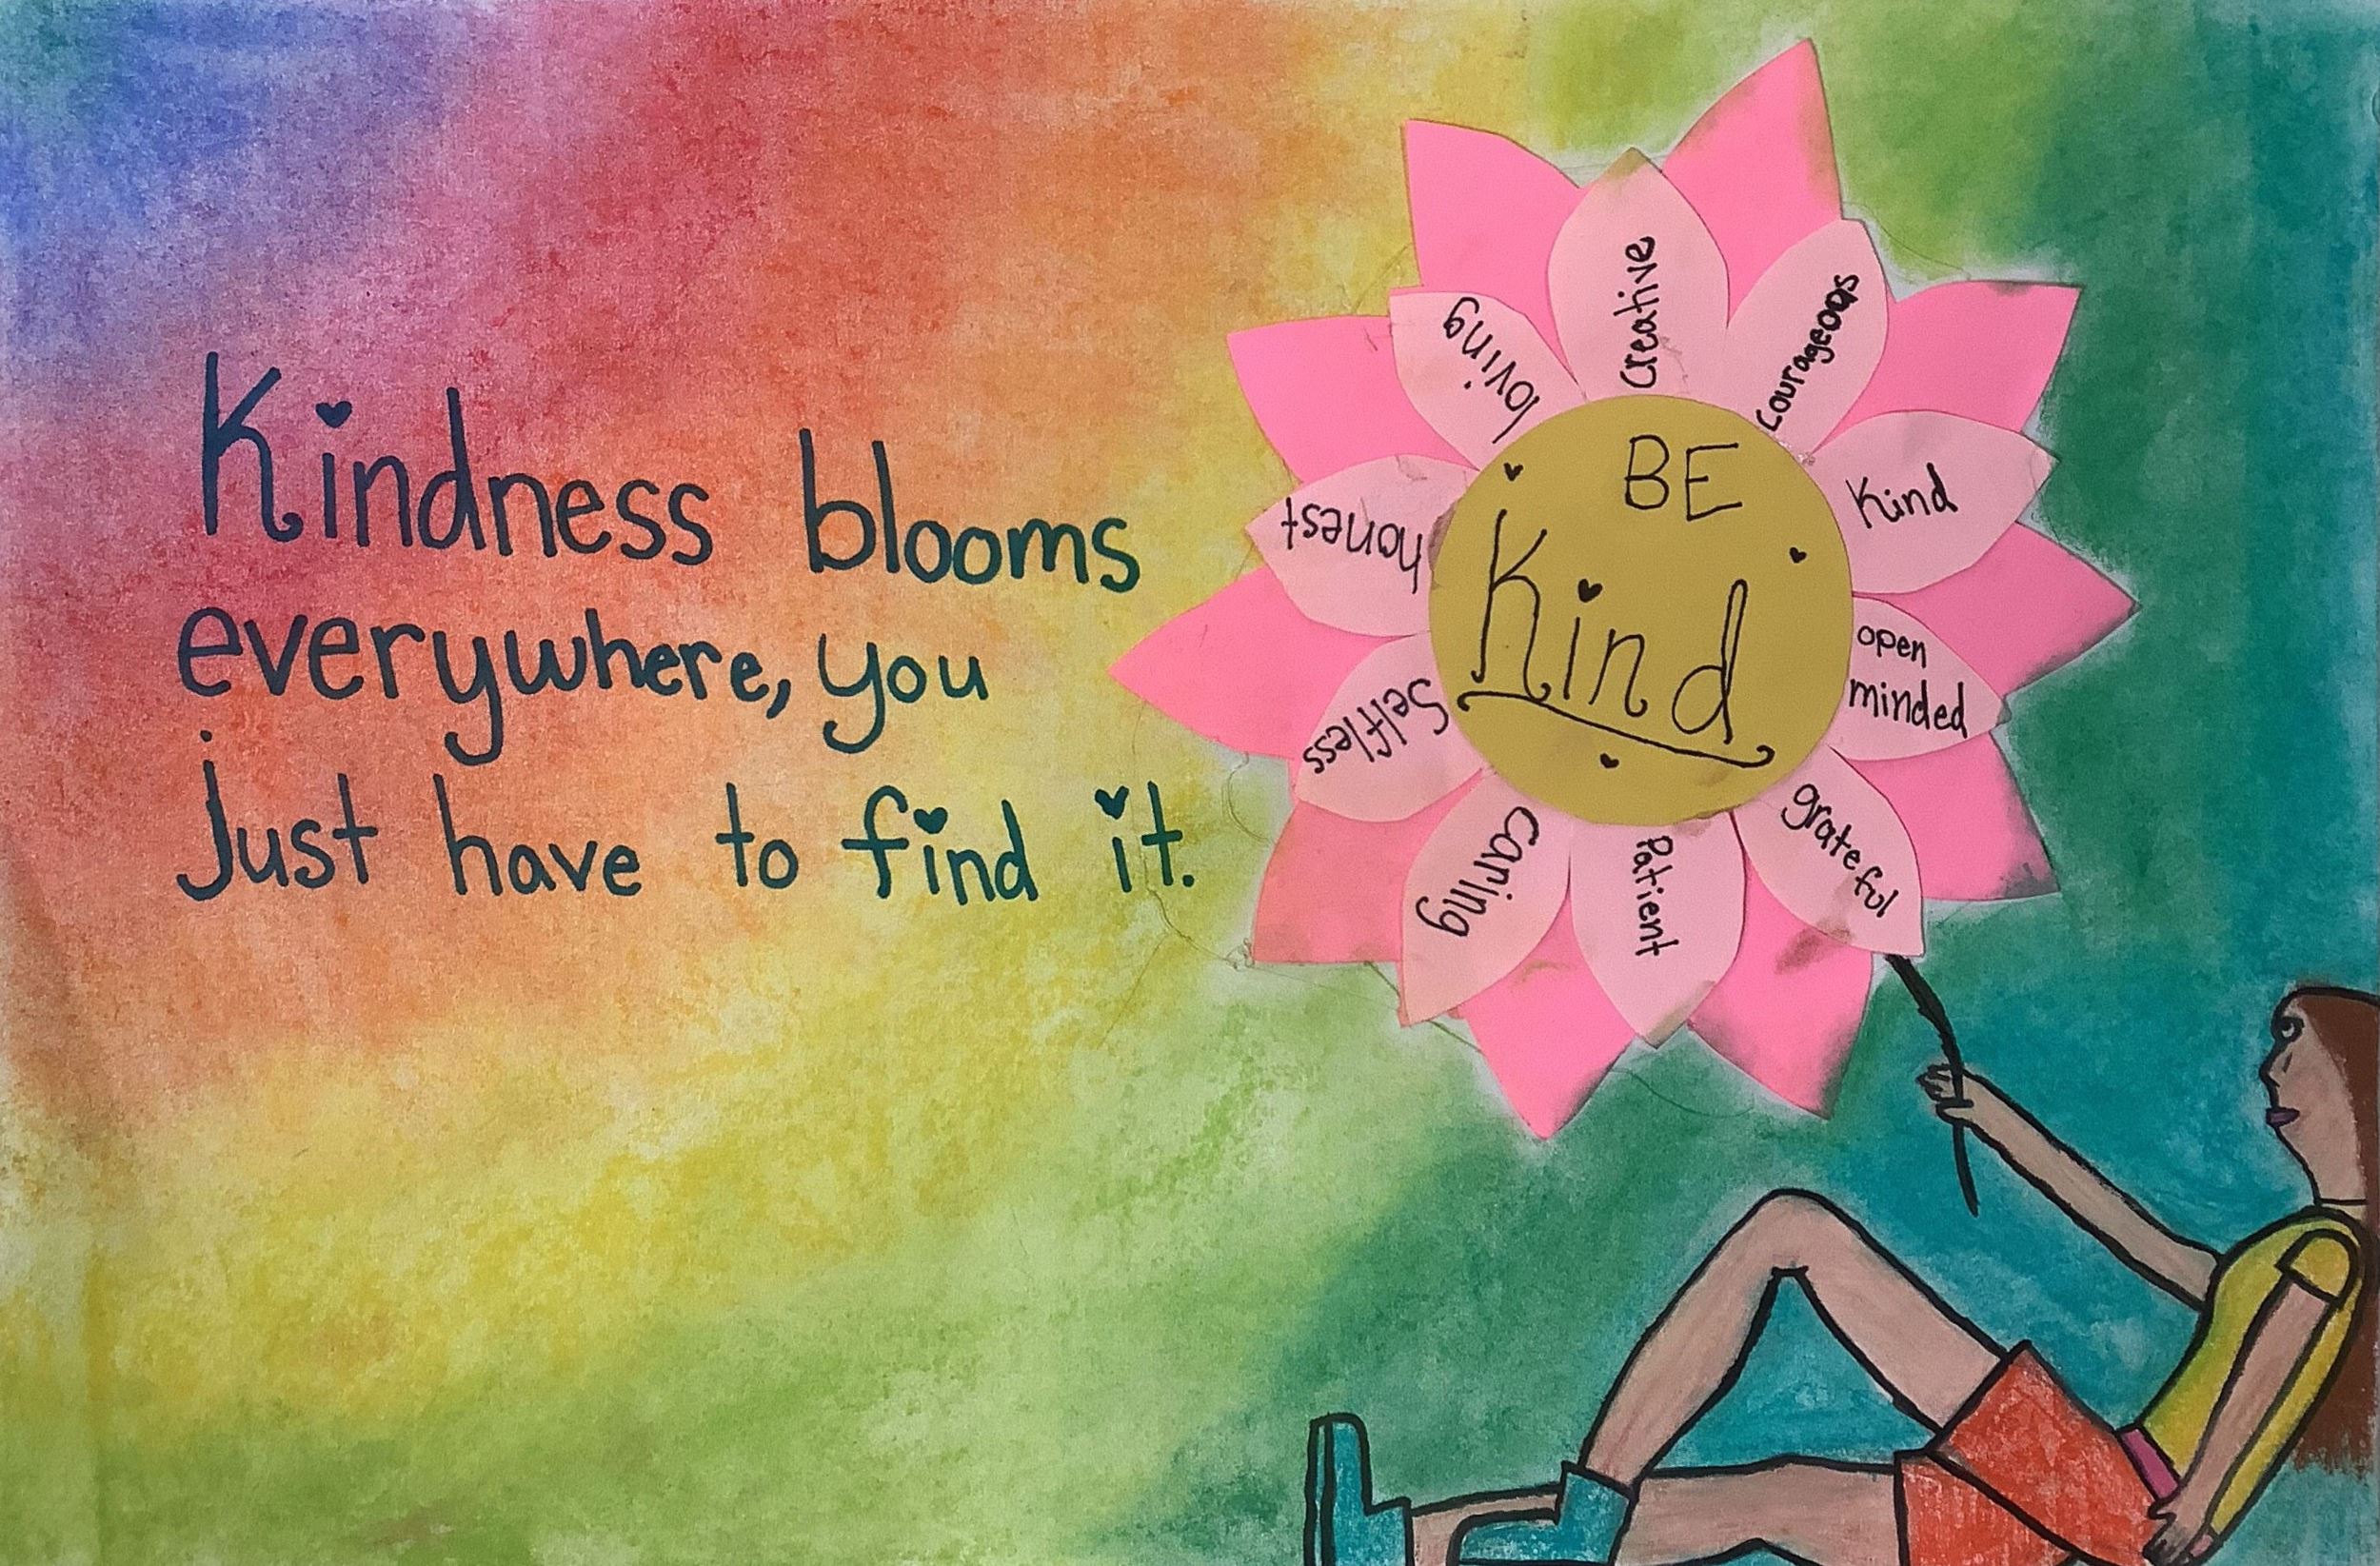 Kindness blooms
everywhere, you
just have to find it.
BE
Kind
creative
courageous
Kind
open
minded
grateful
Patient
caring
Selfless
honest
loving